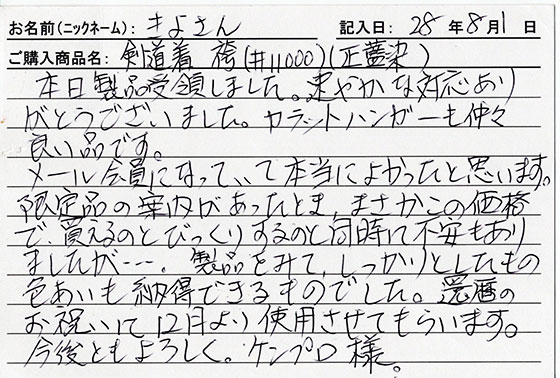 お名前(ニックネーム): きよさん 記入日: 28 年 8 月 1 日
ご購入商品名: 剣道着 袴(#11000)(正藍染)
本日製品受領しました。速やかな対応あり
がとうございました。カラットハンガーも仲々
良い品です。
メール会員になっていて本当によかったと思います。
限定品の案内があったとき、まさかこの価格
で、買えるのとびっくりするのと同時に不安もあり
ましたが---。製品をみて、しっかりとしたもの
色あいも納得できるものでした。還暦の
お祝いにて12月より使用させてもらいます。
今後ともよろしく。ケンプロ様。